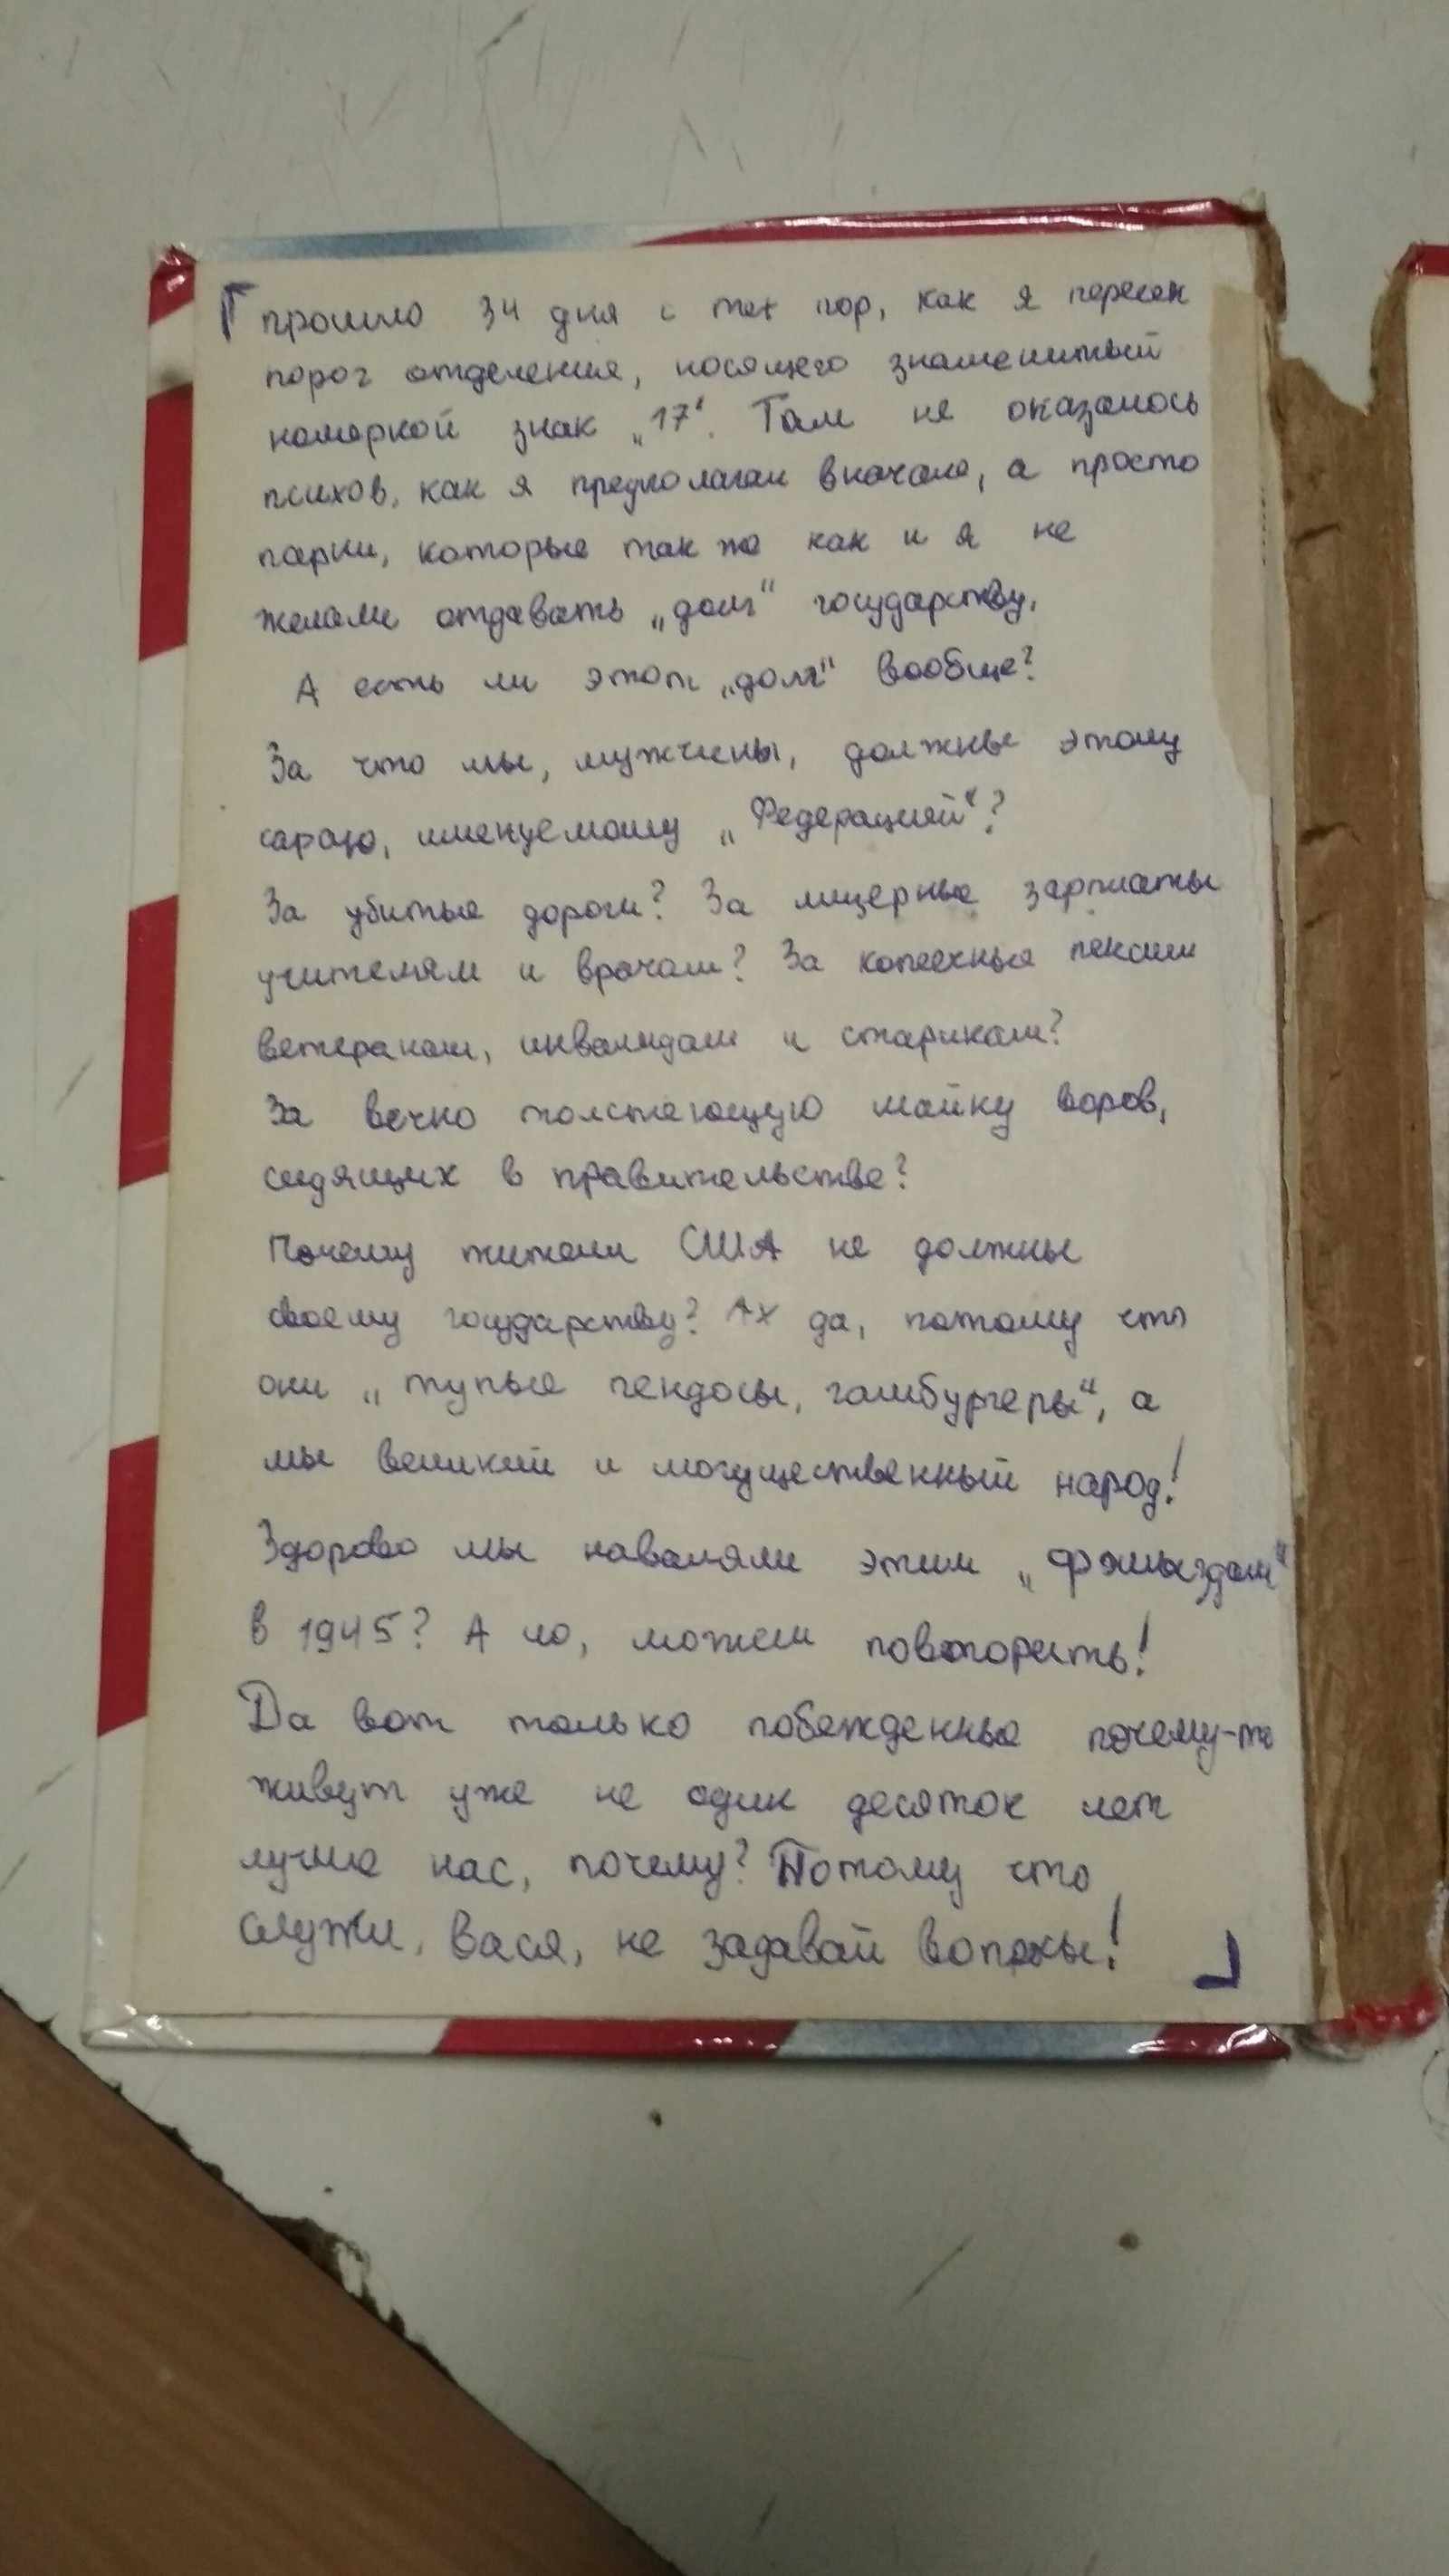 прошло 34 дня с тех пор, как я пересек
порог отделения, носящего знаменитый
номерной знак „17“. Там не оказалось
психов, как я предполагал вначале, а просто
парни, которые так же как и я не
желали отдавать „долг“ государству.
А есть ли этот „долг“ вообще?
За что мы, мужчины, должны этому
сараю, именуемому „Федерацией“?
За убитые дороги? За мизерные зарплаты
учителям и врачам? За копеечные пенсии
ветеранам, инвалидам и старикам?
За вечно толстеющую шайку воров,
сидящих в правительстве?
Почему жители США не должны
своему государству? Ах да, потому что
они „тупые пендосы, гамбургеры“, а
мы великий и могущественный народ!
Здорово мы наваляли этим
в 1945? А чо, можем повторить!
Да вот только побежденные почему-то
живут уже не один десяток лет
лучше нас, почему? Потому что
служи, Вася, не задавай вопросы!